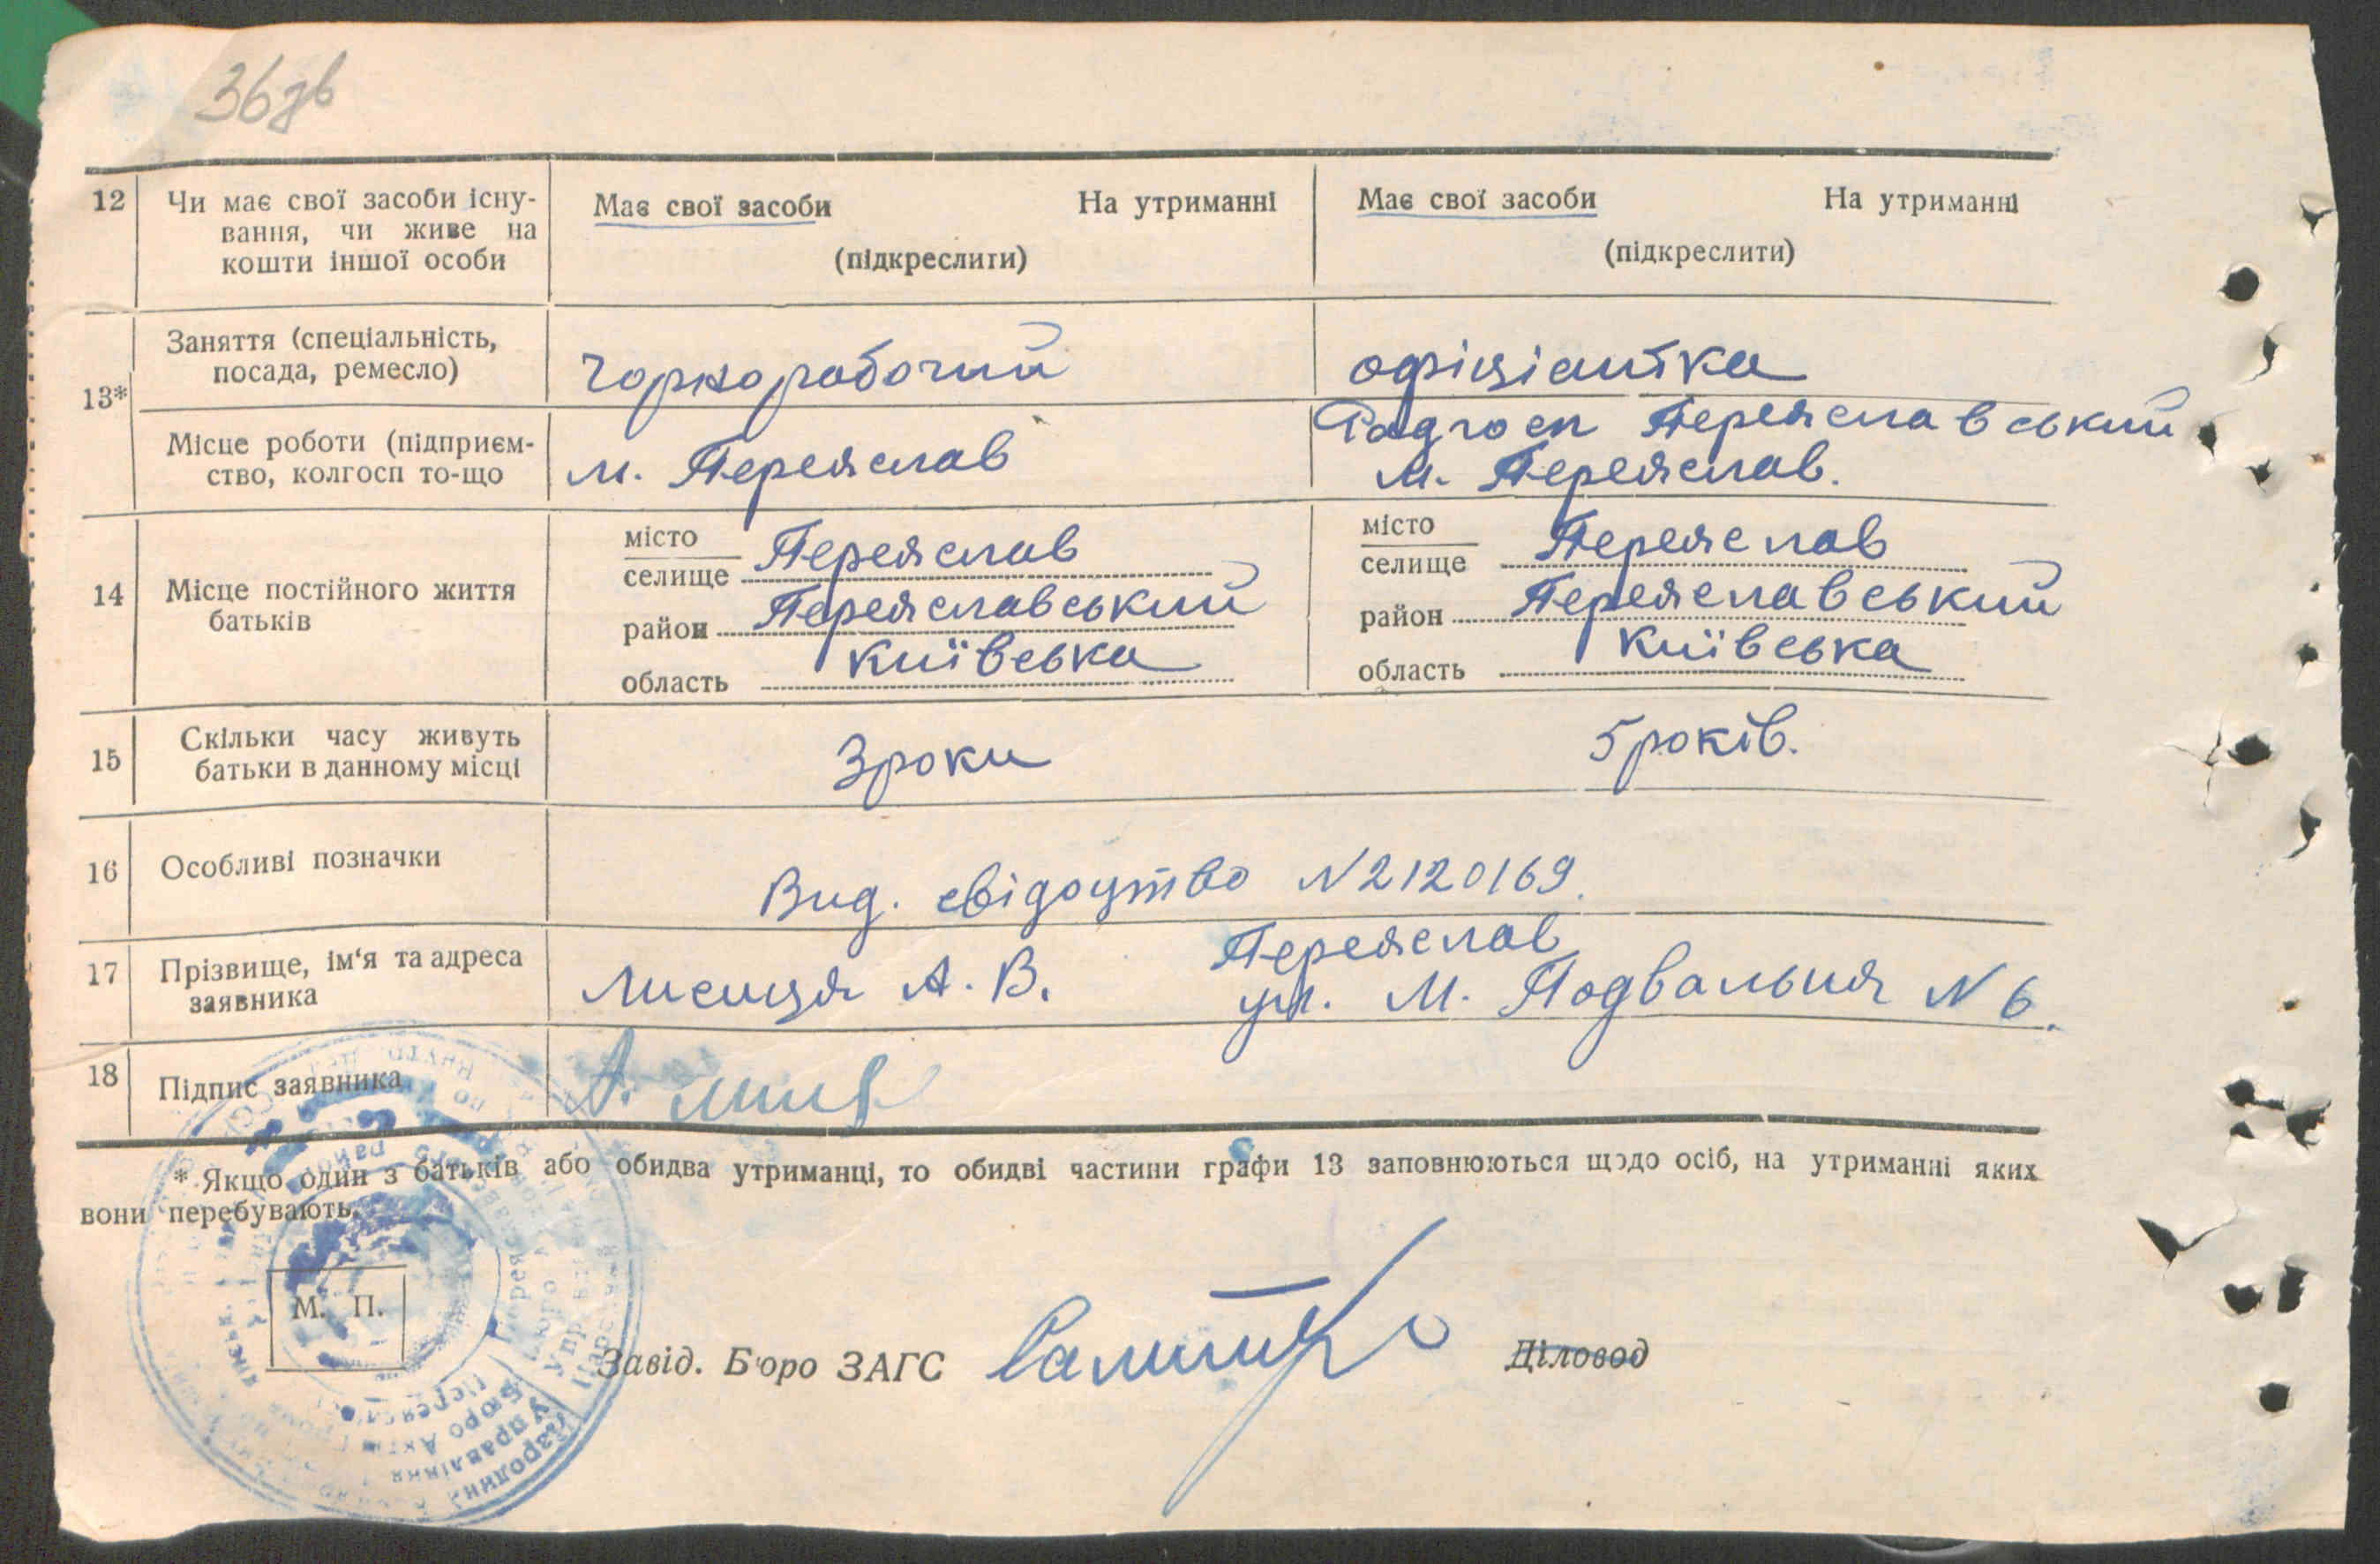 36зв
12 Чи має свої засоби існу- Має свої засоби На утриманні Має свої засоби На утриманні
вання, чи живе на
кошти іншої особи (підкреслити) (підкреслити)
Заняття (спеціальність,
посада, ремесло) Чорноробочий офіціантка
13*
Місце роботи (підприєм- Радгосп Переяславський
ство, колгосп то-що м. Переяслав м. Переяслав.
14 Місце постійного життя
батьків
місто
селище Переяслав
район Переяславський
область Київська
місто
селище Переяслав
район Переяславський
область Київська
15 Скільки часу живуть
батьки в данному місці 3 роки 5 років.
16 Особливі позначки Вид. свідоцтво N 2120169.
17 Прізвище, ім'я та адреса Переяслав
заявника Лисиця А. В. ул. М. Подвальня N 6.
18 Підпис заявника
* Якщо один з батьків або обидва утриманці, то обидві частини графи 13 заповнюються щодо осіб, на утриманні яких
вони перебувають.
М. П.
Завід. Бюро ЗАГС Діловод